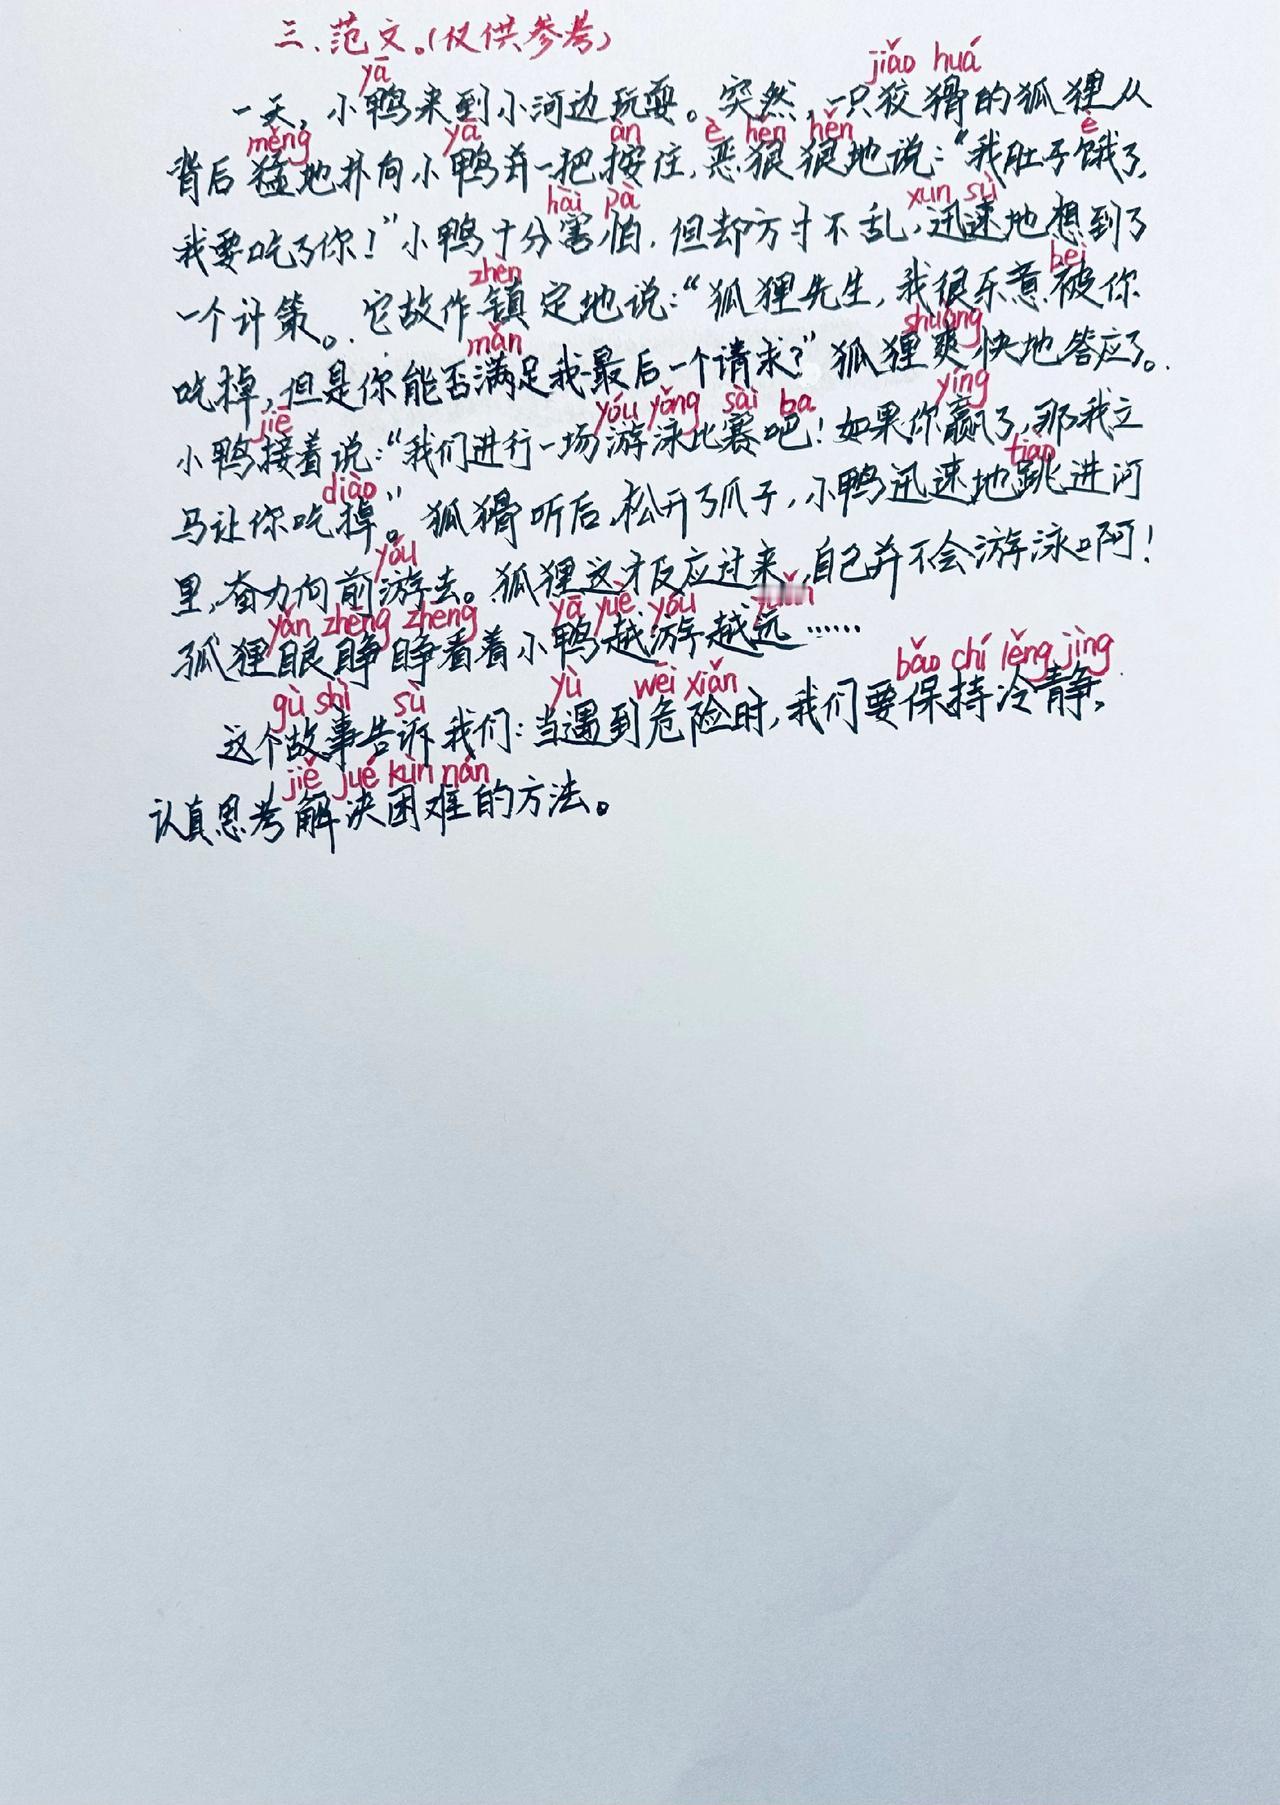 三、范文。(仅供参考)
yā jiǎo huá
一天，小鸭来到小河边玩耍。突然，一只狡猾的狐狸从
měng yā àn è hěn hěn è
背后猛地扑向小鸭并一把按住，恶狠狠地说：“我肚子饿了，
hài pà xùn sù
我要吃了你！”小鸭十分害怕，但却方寸不乱，迅速地想到了
zhèn bèi
一个计策。它故作镇定地说：“狐狸先生，我很乐意被你
mǎn shuǎng
吃掉，但是你能否满足我最后一个请求？”狐狸爽快地答应了。
jiē yóu yǒng sài ba yíng
小鸭接着说：“我们进行一场游泳比赛吧！如果你赢了，那我立
diào tiào
马让你吃掉。”狐猾听后，松开了爪子，小鸭迅速地跳进河
yóu
里，奋力向前游去。狐狸这才反应过来，自己并不会游泳啊！
yǎn zhēng zhēng yā yuè yóu yuǎn
狐狸眼睁睁看着小鸭越游越远……
gù shì sù yù wēi xiǎn bǎo chí lěng jìng
这个故事告诉我们：当遇到危险时，我们要保持冷静，
jiě jué kùn nán
认真思考解决困难的方法。